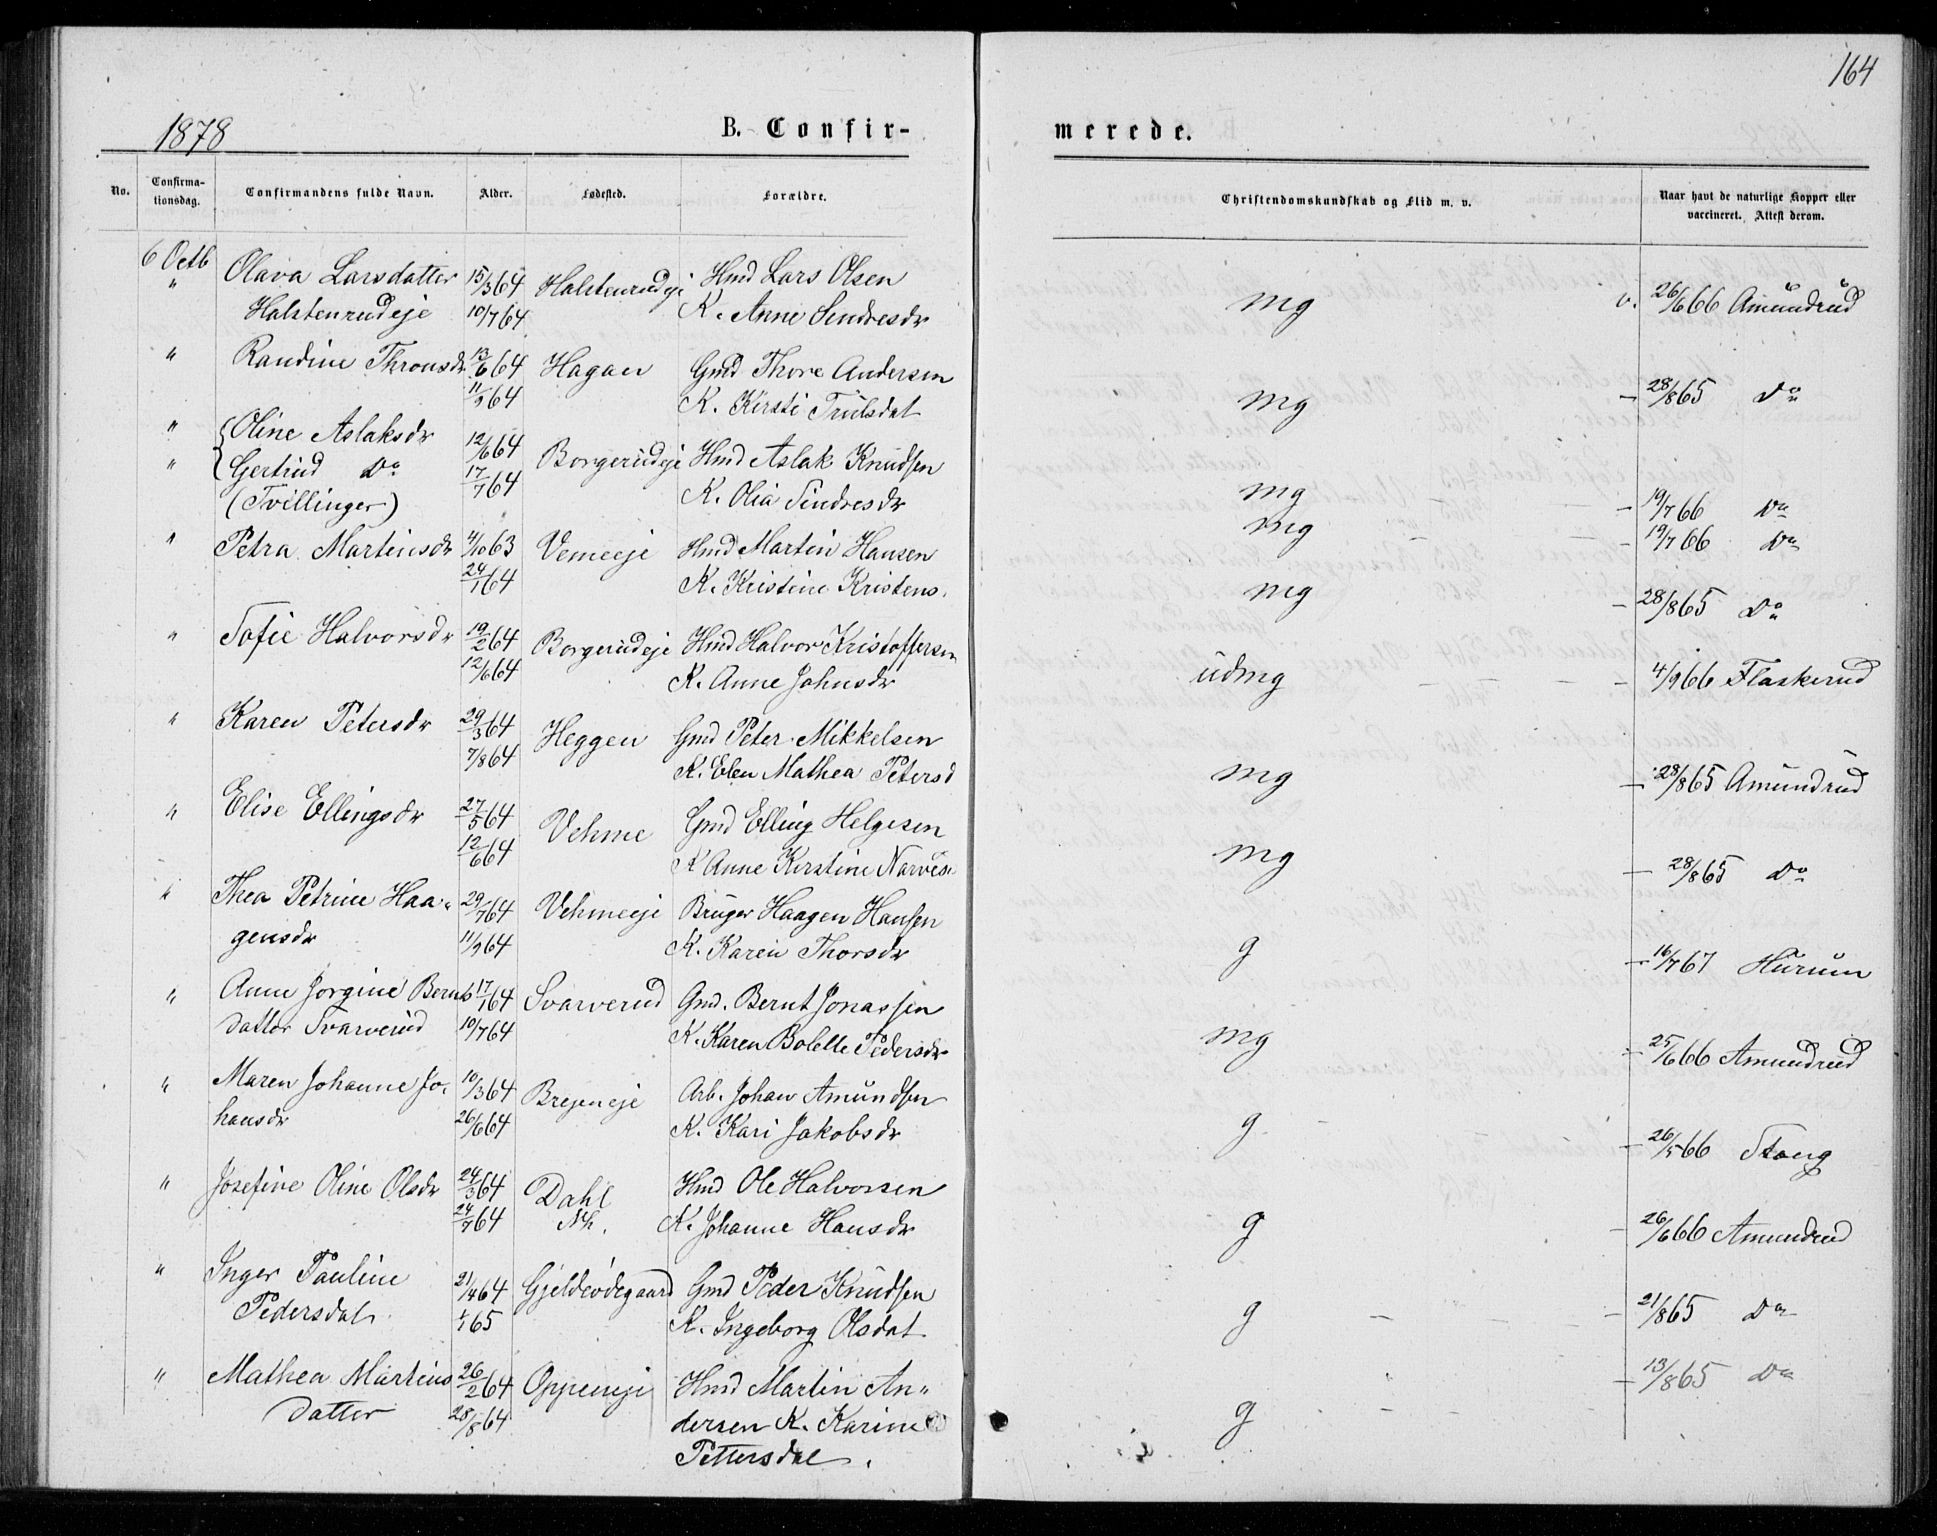 164
1878 B. Confir- merede.
No. Confirma-tionsdag. Confirmandens fulde Navn. Alder. Fødested. Forældre. Christendomskundskab og Flid m. v. Naar havt de naturlige Kopper eller vaccineret. Attest derom.
6 Octb Olava Larsdatter 15/3 64 Halstenrudeje Hmd Lars Olsen
" Halstenrudeje 10/7 64 K. Anne Sindresdr mg v. 26/6 66 Amundrud
" Randine Thronsdr 13/6 64 Hagan Gmd Thore Andersen
11/9 64 K. Kirsti Trulsdat mg — 28/8 65 Do
" Oline Aslaksdr 12/6 64 Borgerudeje Hmd Aslak Knudsen
" Gertrud Do 17/7 64 K. Olia Sindresdr mg — 19/7 66 Do
(Tvillinger) mg 19/7 66 Do
" Petra Martinsdr 4/10 63 Vemeeje Hmd Martin Hansen
24/1 64 K. Kristine Kristens. mg — 28/8 65 Do
" Sofie Halvorsdr 19/2 64 Borgerudeje Hmd Halvor Kristoffersen
12/6 64 K. Anne Johnsdr udmg — 4/9 66 Flaskerud
" Karen Petersdr 29/3 64 Heggen Gmd Peter Mikkelsen
7/8 64 K. Elen Mathea Petersd mg — 28/8 65 Amundrud
" Elise Ellingsdr 27/5 64 Vehme Gmd Elling Helgesen
12/6 64 K Anne Kirstine Narves. mg — 28/8 65 Do
" Thea Petrine Haa- 29/7 64 Vehmeeje Bruger Haagen Hansen
gensdr 11/9 64 K. Karen Thorsdr g — 16/7 67 Hurum
" Anne Jorgine Bernts 17/1 64 Svarverud Gmd. Bernt Jonassen
datter Svarverud 10/7 64 K. Karen Bolette Pedersdr mg — 25/6 66 Amundrud
" Maren Johanne Jo- 10/3 64 Brejeneje Arb. Johan Amundsen
hansdr 26/6 64 K. Kari Jakobsdr g — 26/5 66 Stang
" Josefine Oline Olsdr 24/3 64 Dahl Hmd Ole Halvorsen
24/7 64 Nh. K. Johanne Hansdr g — 26/6 66 Amundrud
" Inger Pauline 21/4 64 Gjeldeødegaard Gmd Peder Knudsen
Pedersdat 1/1 65 K. Ingeborg Olsdat g — 21/8 65 Do
" Mathea Martins 26/2 64 Oppeneje Hmd Martin An-
datter 28/8 64 dersen K. Karine g — 13/8 65 Do
Pettersdat.